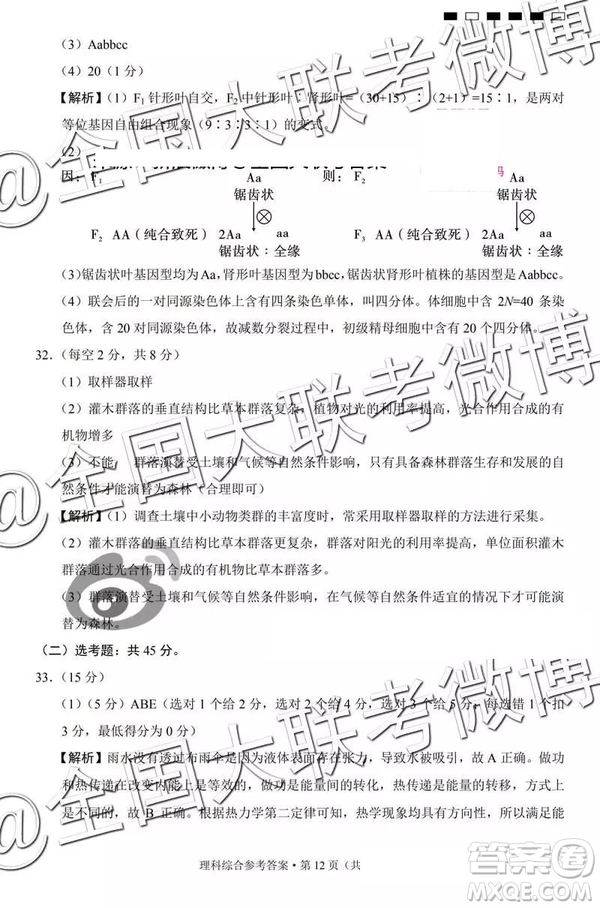 （3）Aabbcc
（4）20（1 分）
【解析】（1）F₁ 针形叶自交，F₂ 中针形叶∶肾形叶=（30+15）∶（2+1）=15∶1，是两对
等位基因自由组合现象（9∶3∶3∶1）的变式
（2）
因：F₁ Aa 则：F₂ Aa
锯齿状 锯齿状
F₂ AA（纯合致死） 2Aa aa F₃ AA（纯合致死） 2Aa aa
锯齿状：全缘 锯齿状：全缘
（3）锯齿状叶基因型均为 Aa，肾形叶基因型为 bbcc，锯齿状肾形叶植株的基因型是 Aabbcc。
（4）联会后的一对同源染色体上含有四条染色单体，叫四分体。体细胞中含 2N=40 条染
色体，含 20 对同源染色体，故减数分裂过程中，初级精母细胞中含有 20 个四分体。
32．（每空 2 分，共 8 分）
（1）取样器取样
（2）灌木群落的垂直结构比草本群落复杂，植物对光的利用率提高，光合作用合成的有
机物增多
（3）不能 群落演替受土壤和气候等自然条件影响，只有具备森林群落生存和发展的自
然条件才能演替为森林（合理即可）
【解析】（1）调查土壤中小动物类群的丰富度时，常采用取样器取样的方法进行采集。
（2）灌木群落的垂直结构比草本群落更复杂，群落对阳光的利用率更高，单位面积灌木
群落通过光合作用合成的有机物比草本群落多。
（3）群落演替受土壤和气候等自然条件影响，在气候等自然条件适宜的情况下可演
替为森林。
（二）选考题：共 45 分。
33．（15 分）
（1）（5 分）ABE（选对 1 个给 2 分，选对 2 个给 4 分，选对 3 个给 5 分。每选错 1 个扣
3 分，最低得分为 0 分）
【解析】雨水没有透过布雨伞是因为液体表面存在张力，导致水被吸引，故 A 正确。做功
和热传递在改变内能上是等效的，做功是能量间的转化，热传递是能量的转移，方式不
同，故 B 正确。根据热力学第二定律可知，热学现象均具有方向性，所以满足能
理科综合参考答案·第 12 页（共
@全国大联考微博
@全国大联考微博
@全国大联考微博
答案圈
MXQE.COM